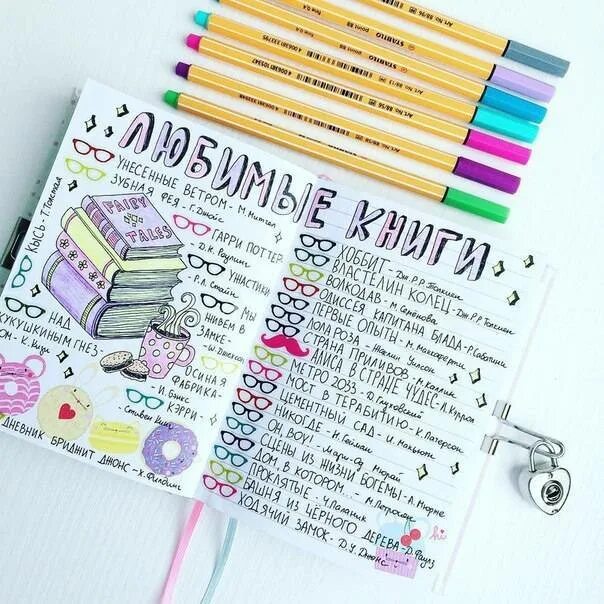 ЛЮБИМЫЕ КНИГИ
УНЕСЕННЫЕ ВЕТРОМ - М. Митчел
ЗУБНАЯ ФЕЯ - Г. Джойс
КЫСЬ - Т. Толстая
FAIRY TALES
ГАРРИ ПОТТЕР
- Д.К. Роулинг
УЖАСТИКИ
- Р.Л. Стайн
МЫ ЖИВЕМ В ЗАМКЕ
- Ш. Джексон
НАД КУКУШКИНЫМ ГНЕЗДОМ - К. Кизи
ОСИНАЯ ФАБРИКА
- И. Бэнкс
КЭРРИ
- Стивен Кинг
ДНЕВНИК БРИДЖИТ ДЖОНС - Х. Филдинг
ХОББИТ - Дж.Р.Р. Толкиен
ВЛАСТЕЛИН КОЛЕЦ - Дж.Р.Р. Толкиен
ВОЛКОДАВ - М. Семёнова
ОДИССЕЯ КАПИТАНА БЛАДА - Р. Сабатини
ПЕРВЫЕ ОПЫТЫ - М.
ЛОЛА РОЗА - Жаклин Уилсон
СТРАНА ПРИЛИВОВ - М. Каллин
АЛИСА В СТРАНЕ ЧУДЕС - Л. Кэррол
МЕТРО 2033 - Д. Глуховский
МОСТ В ТЕРАБИТИЮ - К. Патерсон
ЦЕМЕНТНЫЙ САД - И. Макьюэн
НИКОГДЕ - Н. Гейман
ОН BOY! - Мари-Од Мюрай
СЦЕНЫ ИЗ ЖИЗНИ БОГЕМЫ - А. Мюрже
ДОМ, В КОТОРОМ... - М. Петросян
ПРОКЛЯТЫЕ - Ч. Паланик
БАШНЯ ИЗ ЧЁРНОГО ДЕРЕВА - Д. Фаулз
ХОДЯЧИЙ ЗАМОК - Д.У. Джонс
hi
STABILO
point 88
fine 0,4
Art.No. 88/96